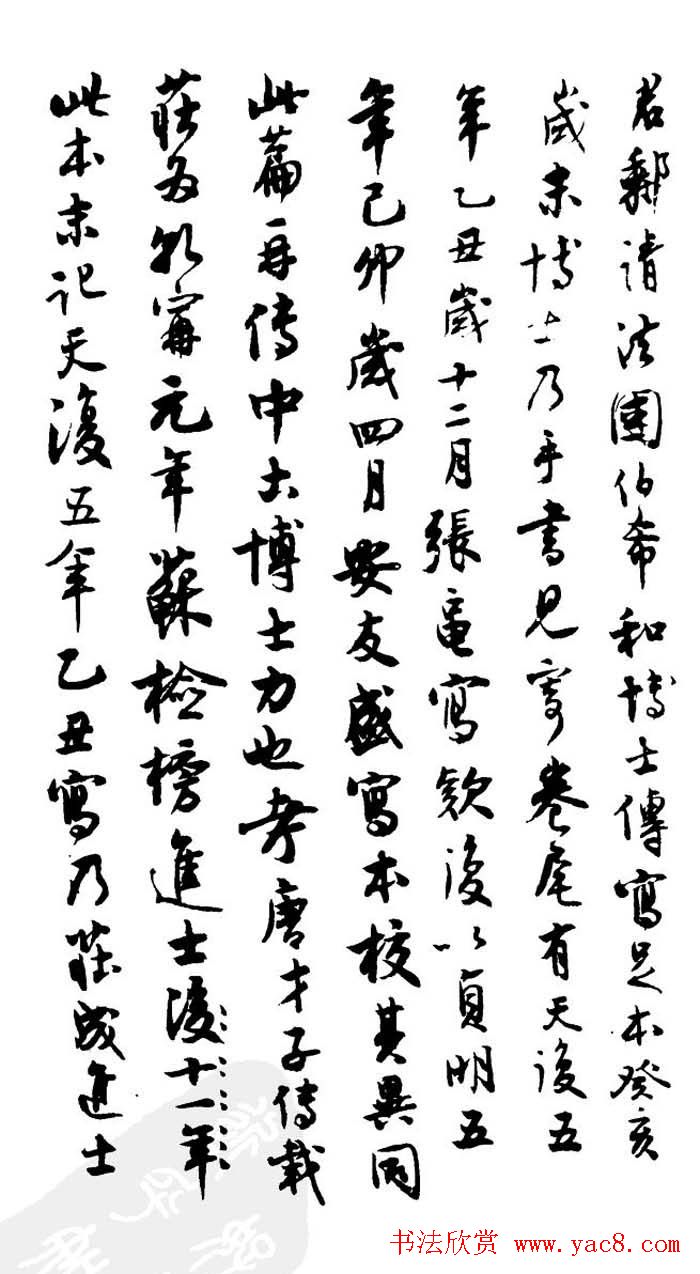 君郵請法國伯希和博士傳寫足本癸亥
歲末博士乃手書見寄卷尾有天復五
年乙丑歲十二月張龜寫欵後以貞明五
年己卯歲四月安友盛寫本校其異同
此篇再傳中土博士力也考唐才子傳載
莊為乾寧元年蘇檢榜進士後十一年
此本末記天復五年乙丑寫乃莊成進士
书法欣赏 www.yac8.com